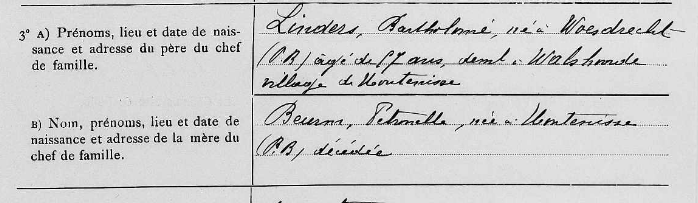 3° A) Prénoms, lieu et date de nais-
sance et adresse du père du chef
de famille.
Linders, Bartholomé, né à Woesdrecht
(P.B) âgé de 57 ans, demt à Walshoorde
village de Hontenisse
B) Nom, prénoms, lieu et date de
naissance et adresse de la mère du
chef de famille.
Petronelle, née à Hontenisse
(P.B) décédée